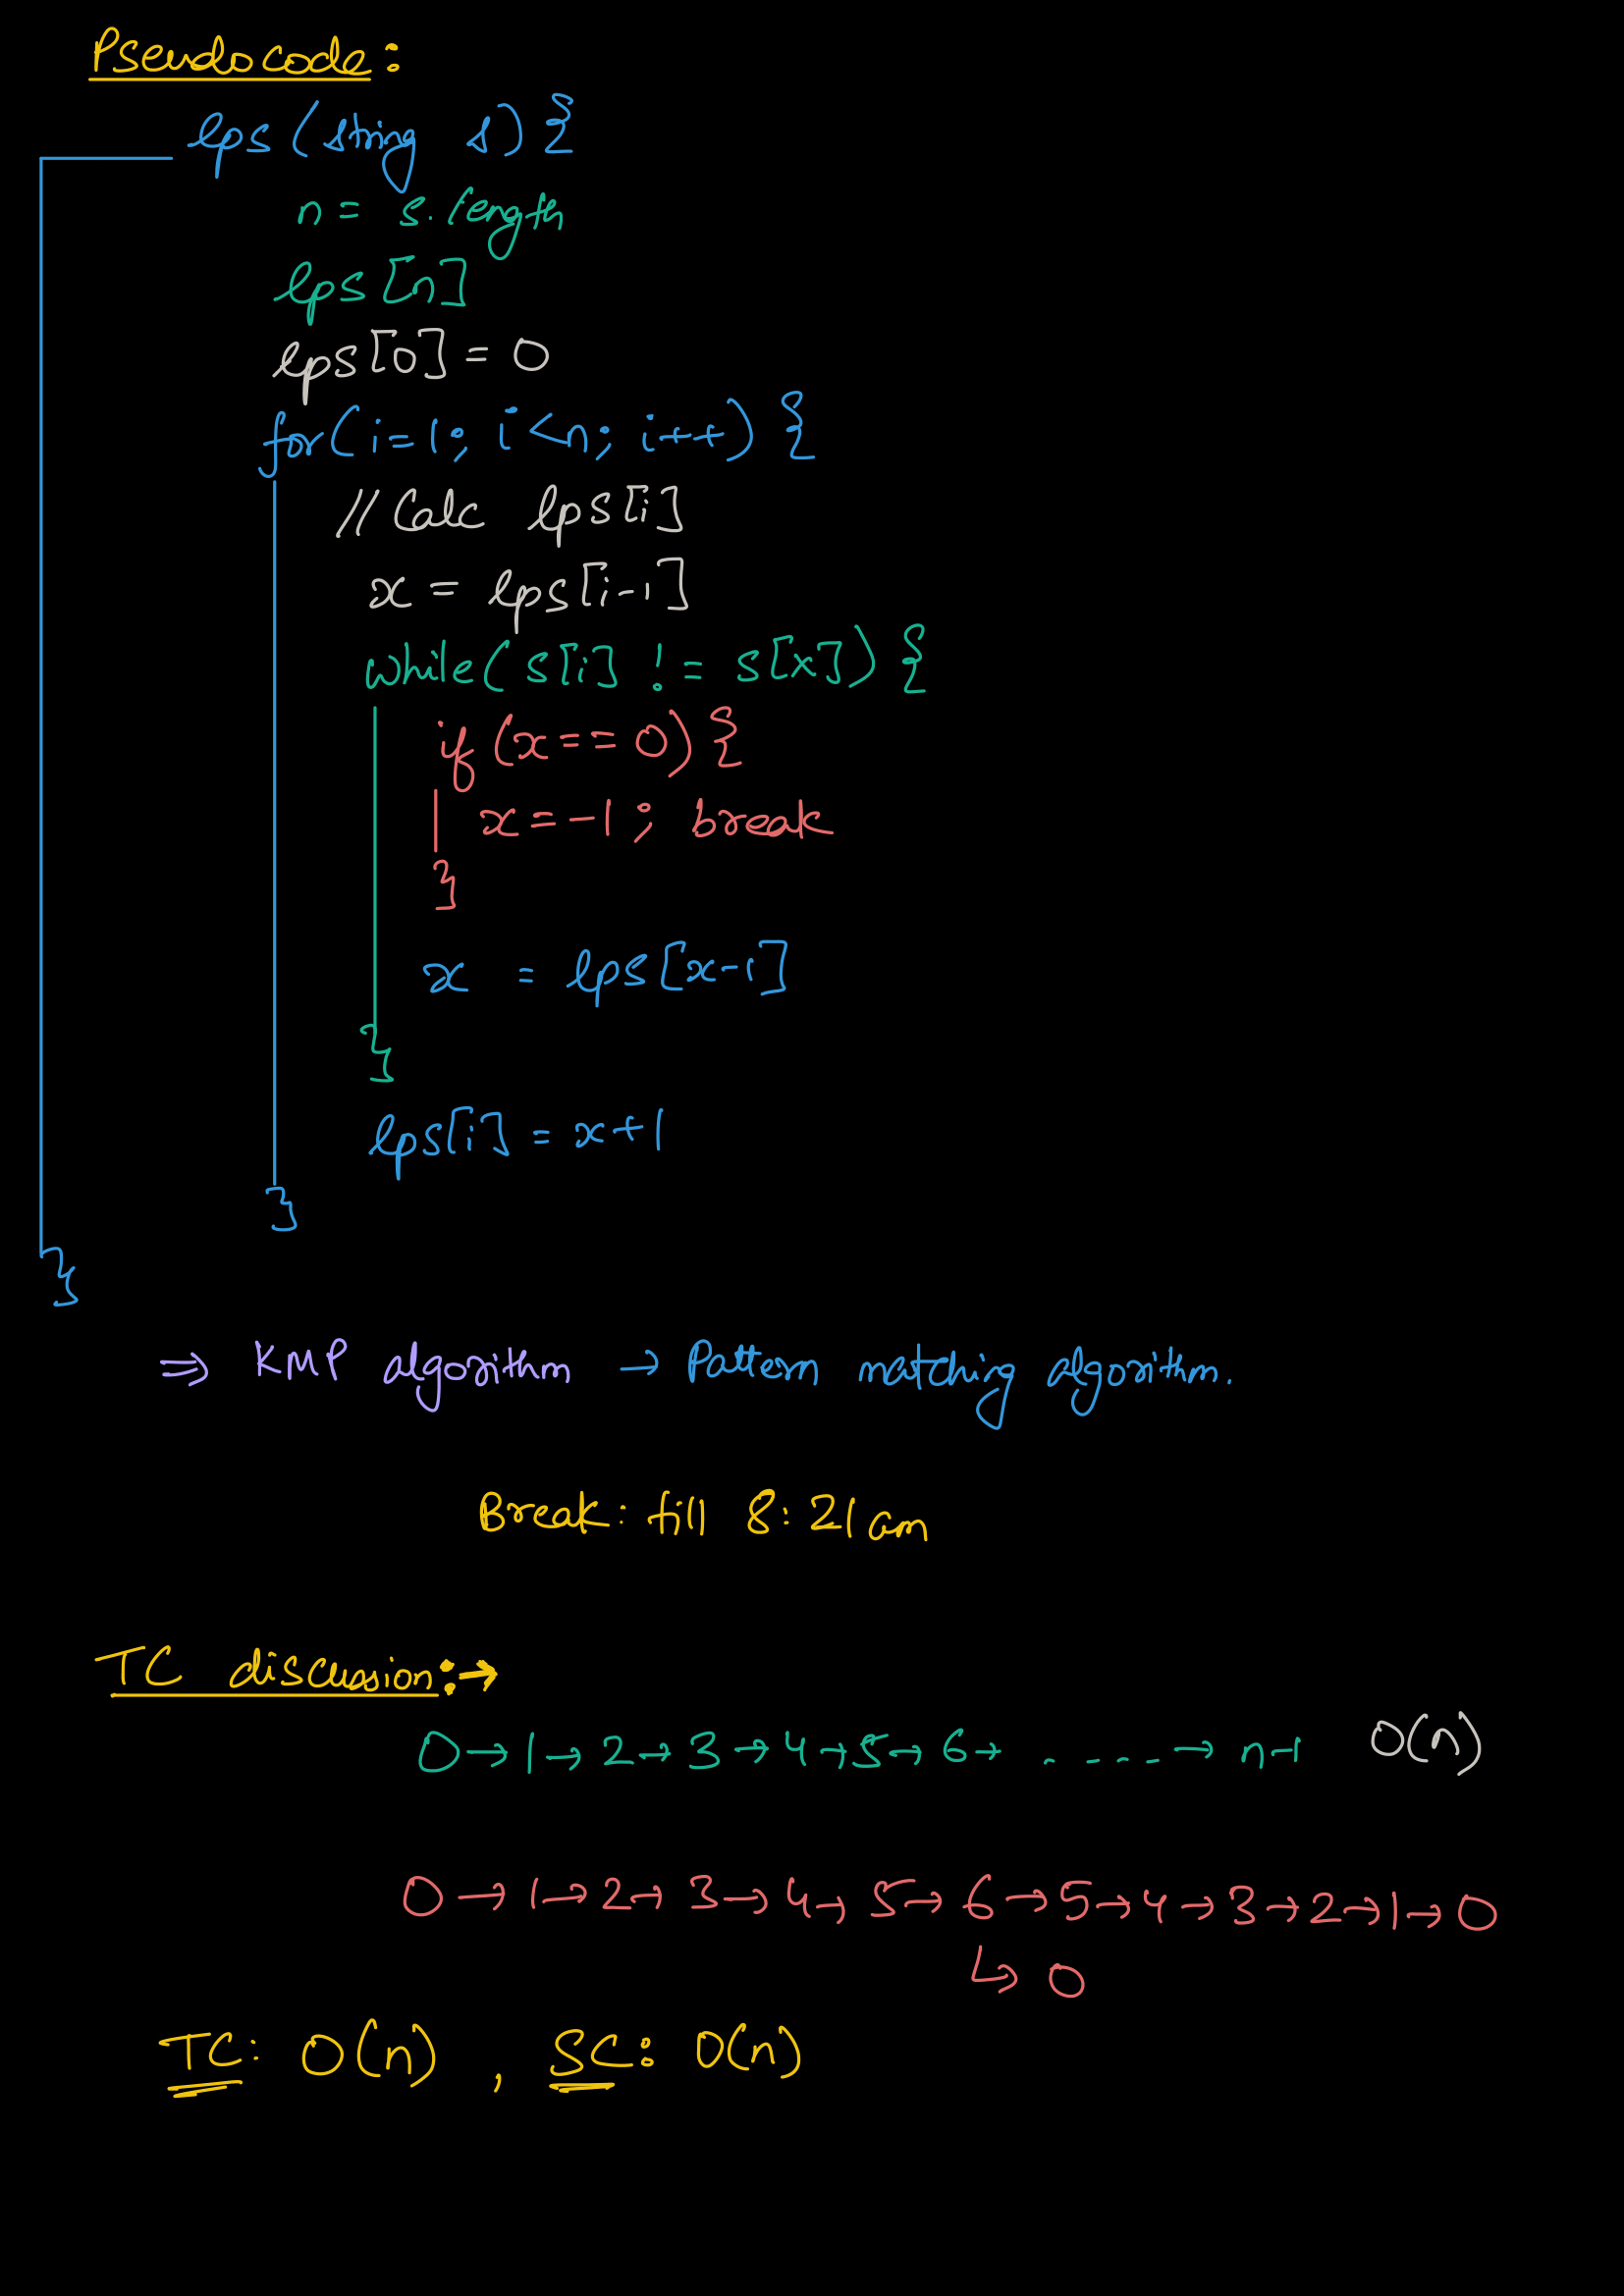 Pseudocode:
lps (string s) {
n = s.length
lps [n]
lps[0] = 0
for(i=1; i<n; i++) {
// Calc lps[i]
x = lps[i-1]
while( s[i] != s[x]) {
if (x == 0) {
x = -1; break
}
x = lps [x-1]
}
lps[i] = x+1
}
}
⇒ KMP algorithm → Pattern matching algorithm.
Break: till 8:21 am
TC discussion:→
0→1→2→3→4→5→6→ ....→ n-1 O(n)
0→1→2→3→4→5→6→5→4→3→2→1→0
↳ 0
TC: O(n) , SC: O(n)